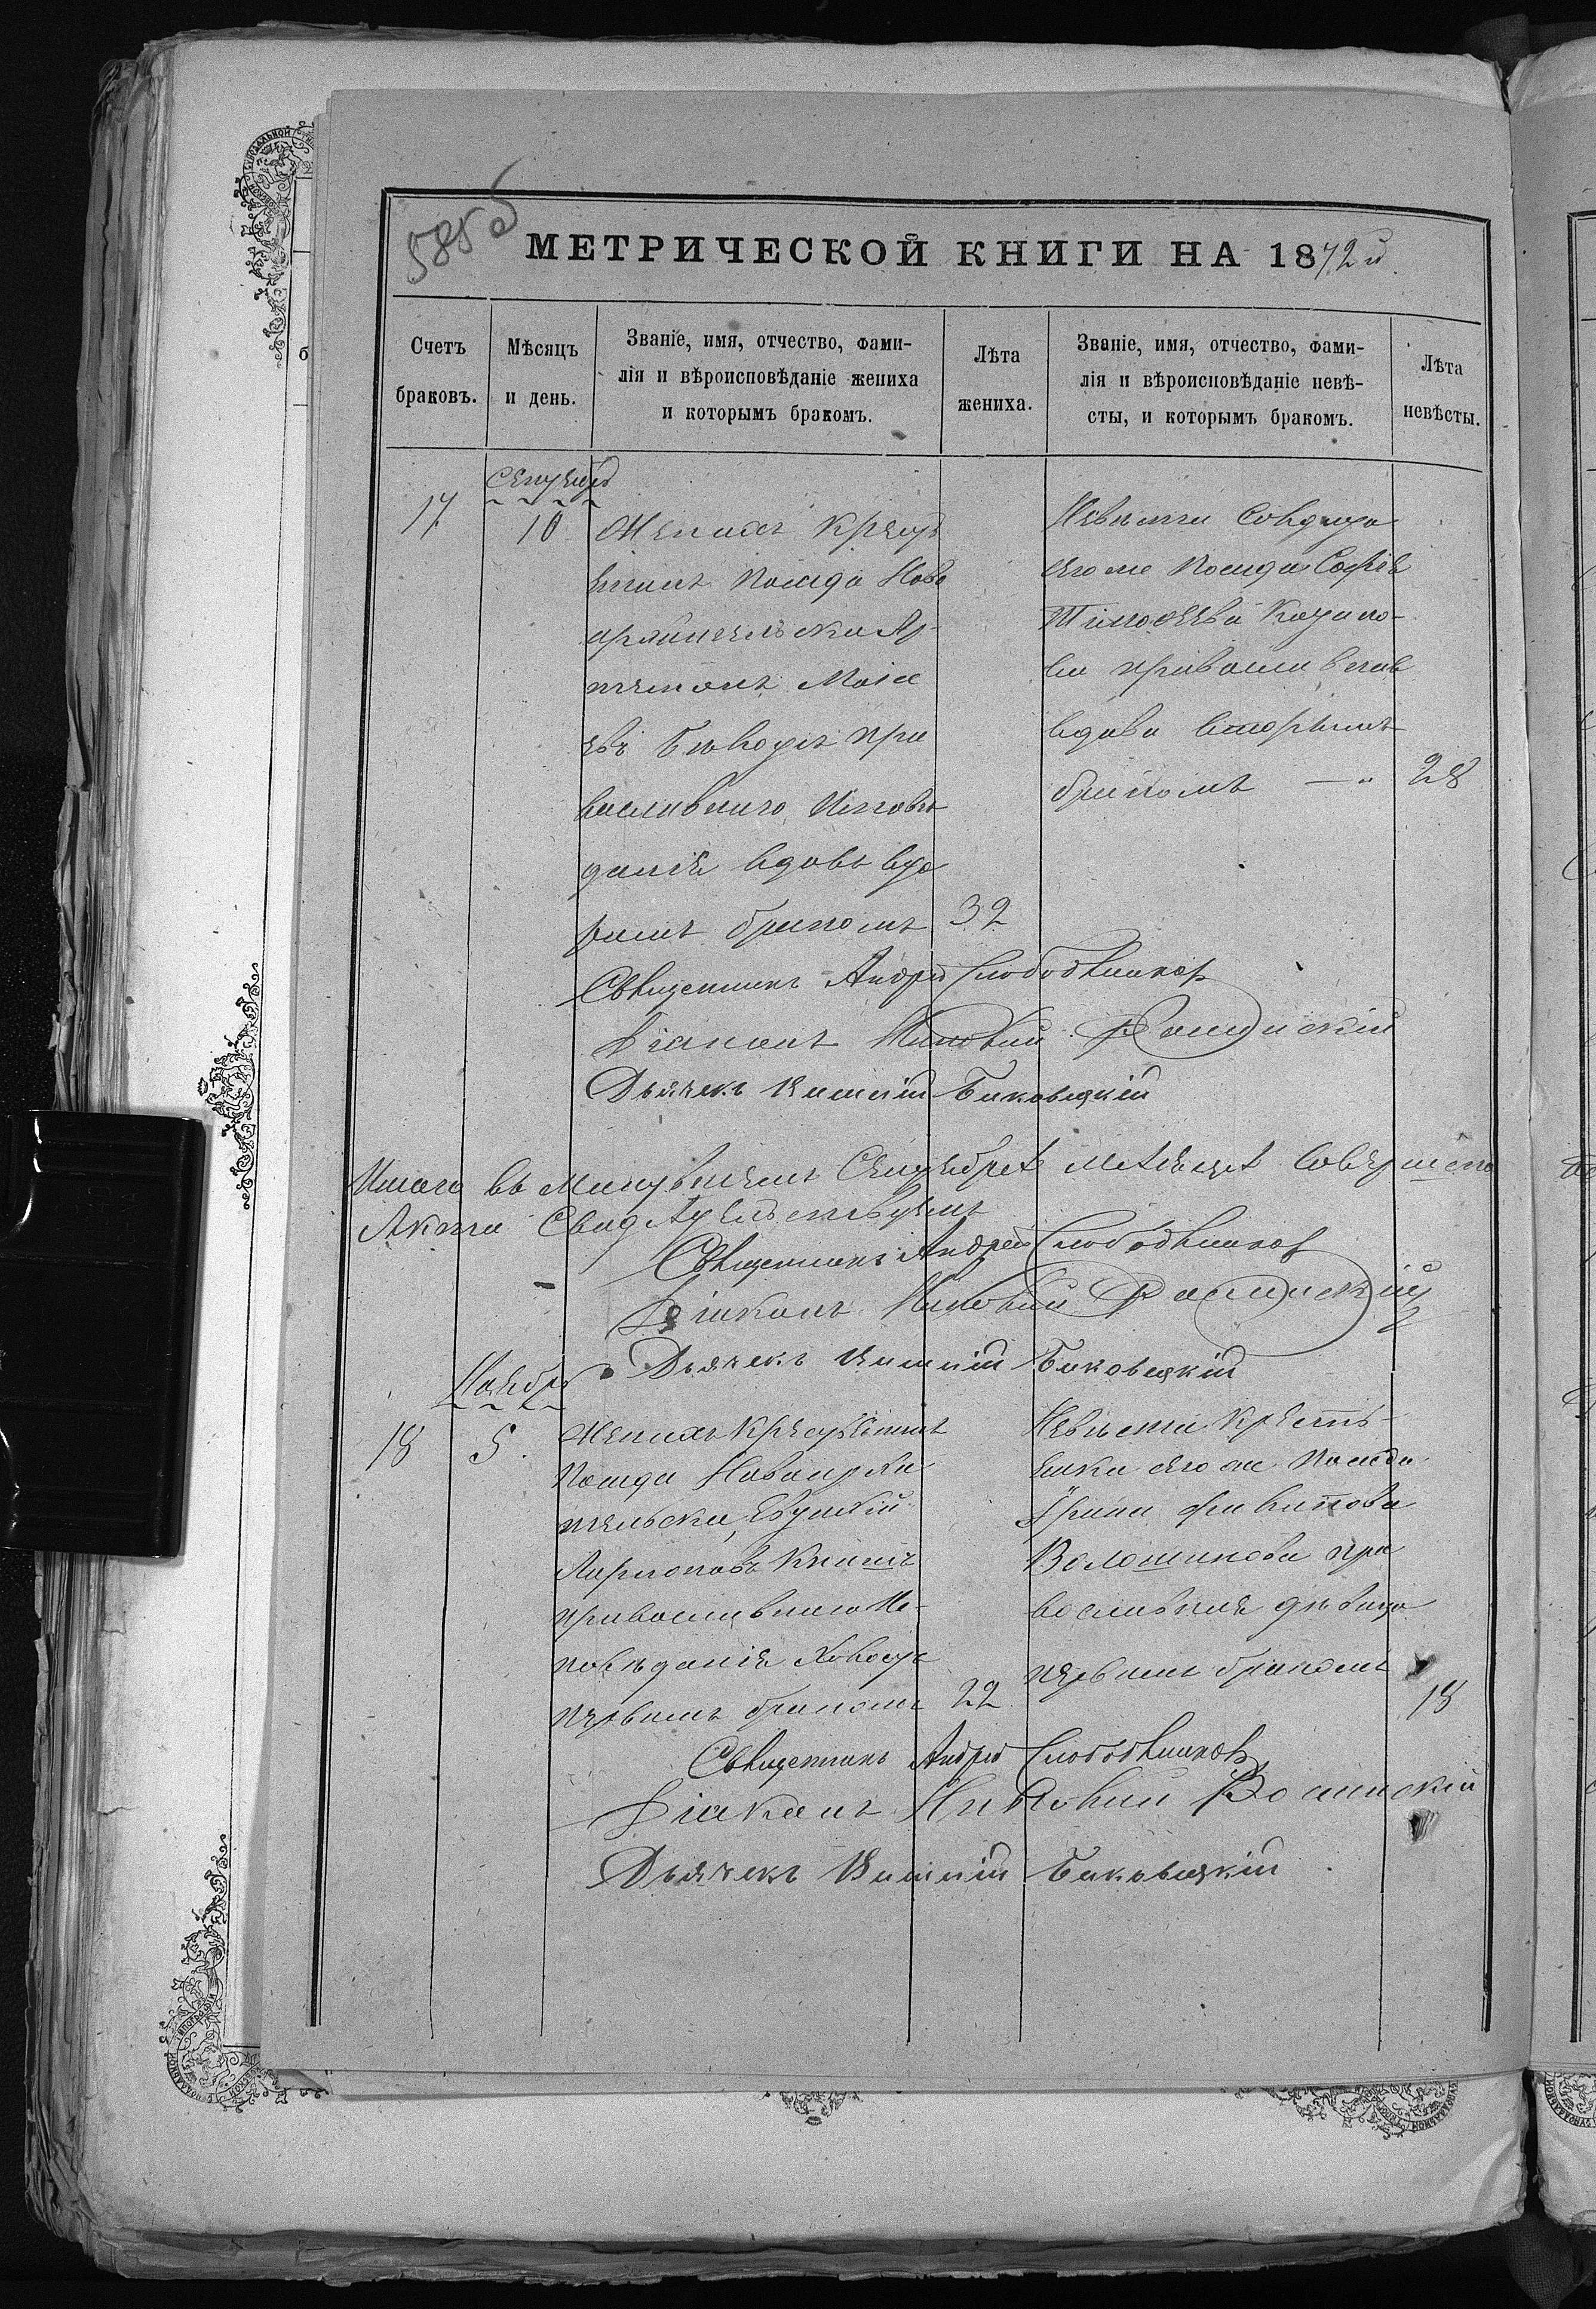 585 об
МЕТРИЧЕСКОЙ КНИГИ НА 1872й
Счетъ браковъ.
Мѣсяцъ и день.
Званіе, имя, отчество, фами-
лія и вѣроисповѣданіе жениха
и которымъ бракомъ.
Лѣта жениха.
Званіе, имя, отчество, фами-
лія и вѣроисповѣданіе невѣ-
сты, и которымъ бракомъ.
Лѣта невѣсты.
Сентябрь
17
10
Женихъ Кресть
янинъ Посада Ново
архангельска Ар-
темонъ Моісе
евъ
православнаго Исповѣ
данія вдовъ вто
рымъ бракомъ
32
Невѣста Солдатка
того же Посада Софія
Тимофѣева Козако-
ва православная
вдова вторымъ
бракомъ — "
28
Священникъ Андрей Слободяников
Діаконъ
Дьячекъ
Итого въ Минувшемъ Сентябрѣ мѣсяцѣ Соверше
Акта Свидѣтельствуемъ
Священникъ Андрей Слободяников
Діаконъ
Дьячекъ
Ноябрь
18
5.
Женихъ Крестьянинъ
Посада Новоарха
нгельска, Евтихій
Ларионовъ Книшъ
православнаго Ис-
повѣданія Холостъ
первымъ бракомъ
22
Невѣста Кресть-
янка того же Посада
Ірина Филипова
Волошинова пра
вославная дѣвица
первымъ бракомъ
18
Священникъ Андрей Слободяников
Діаконъ
Дьячекъ